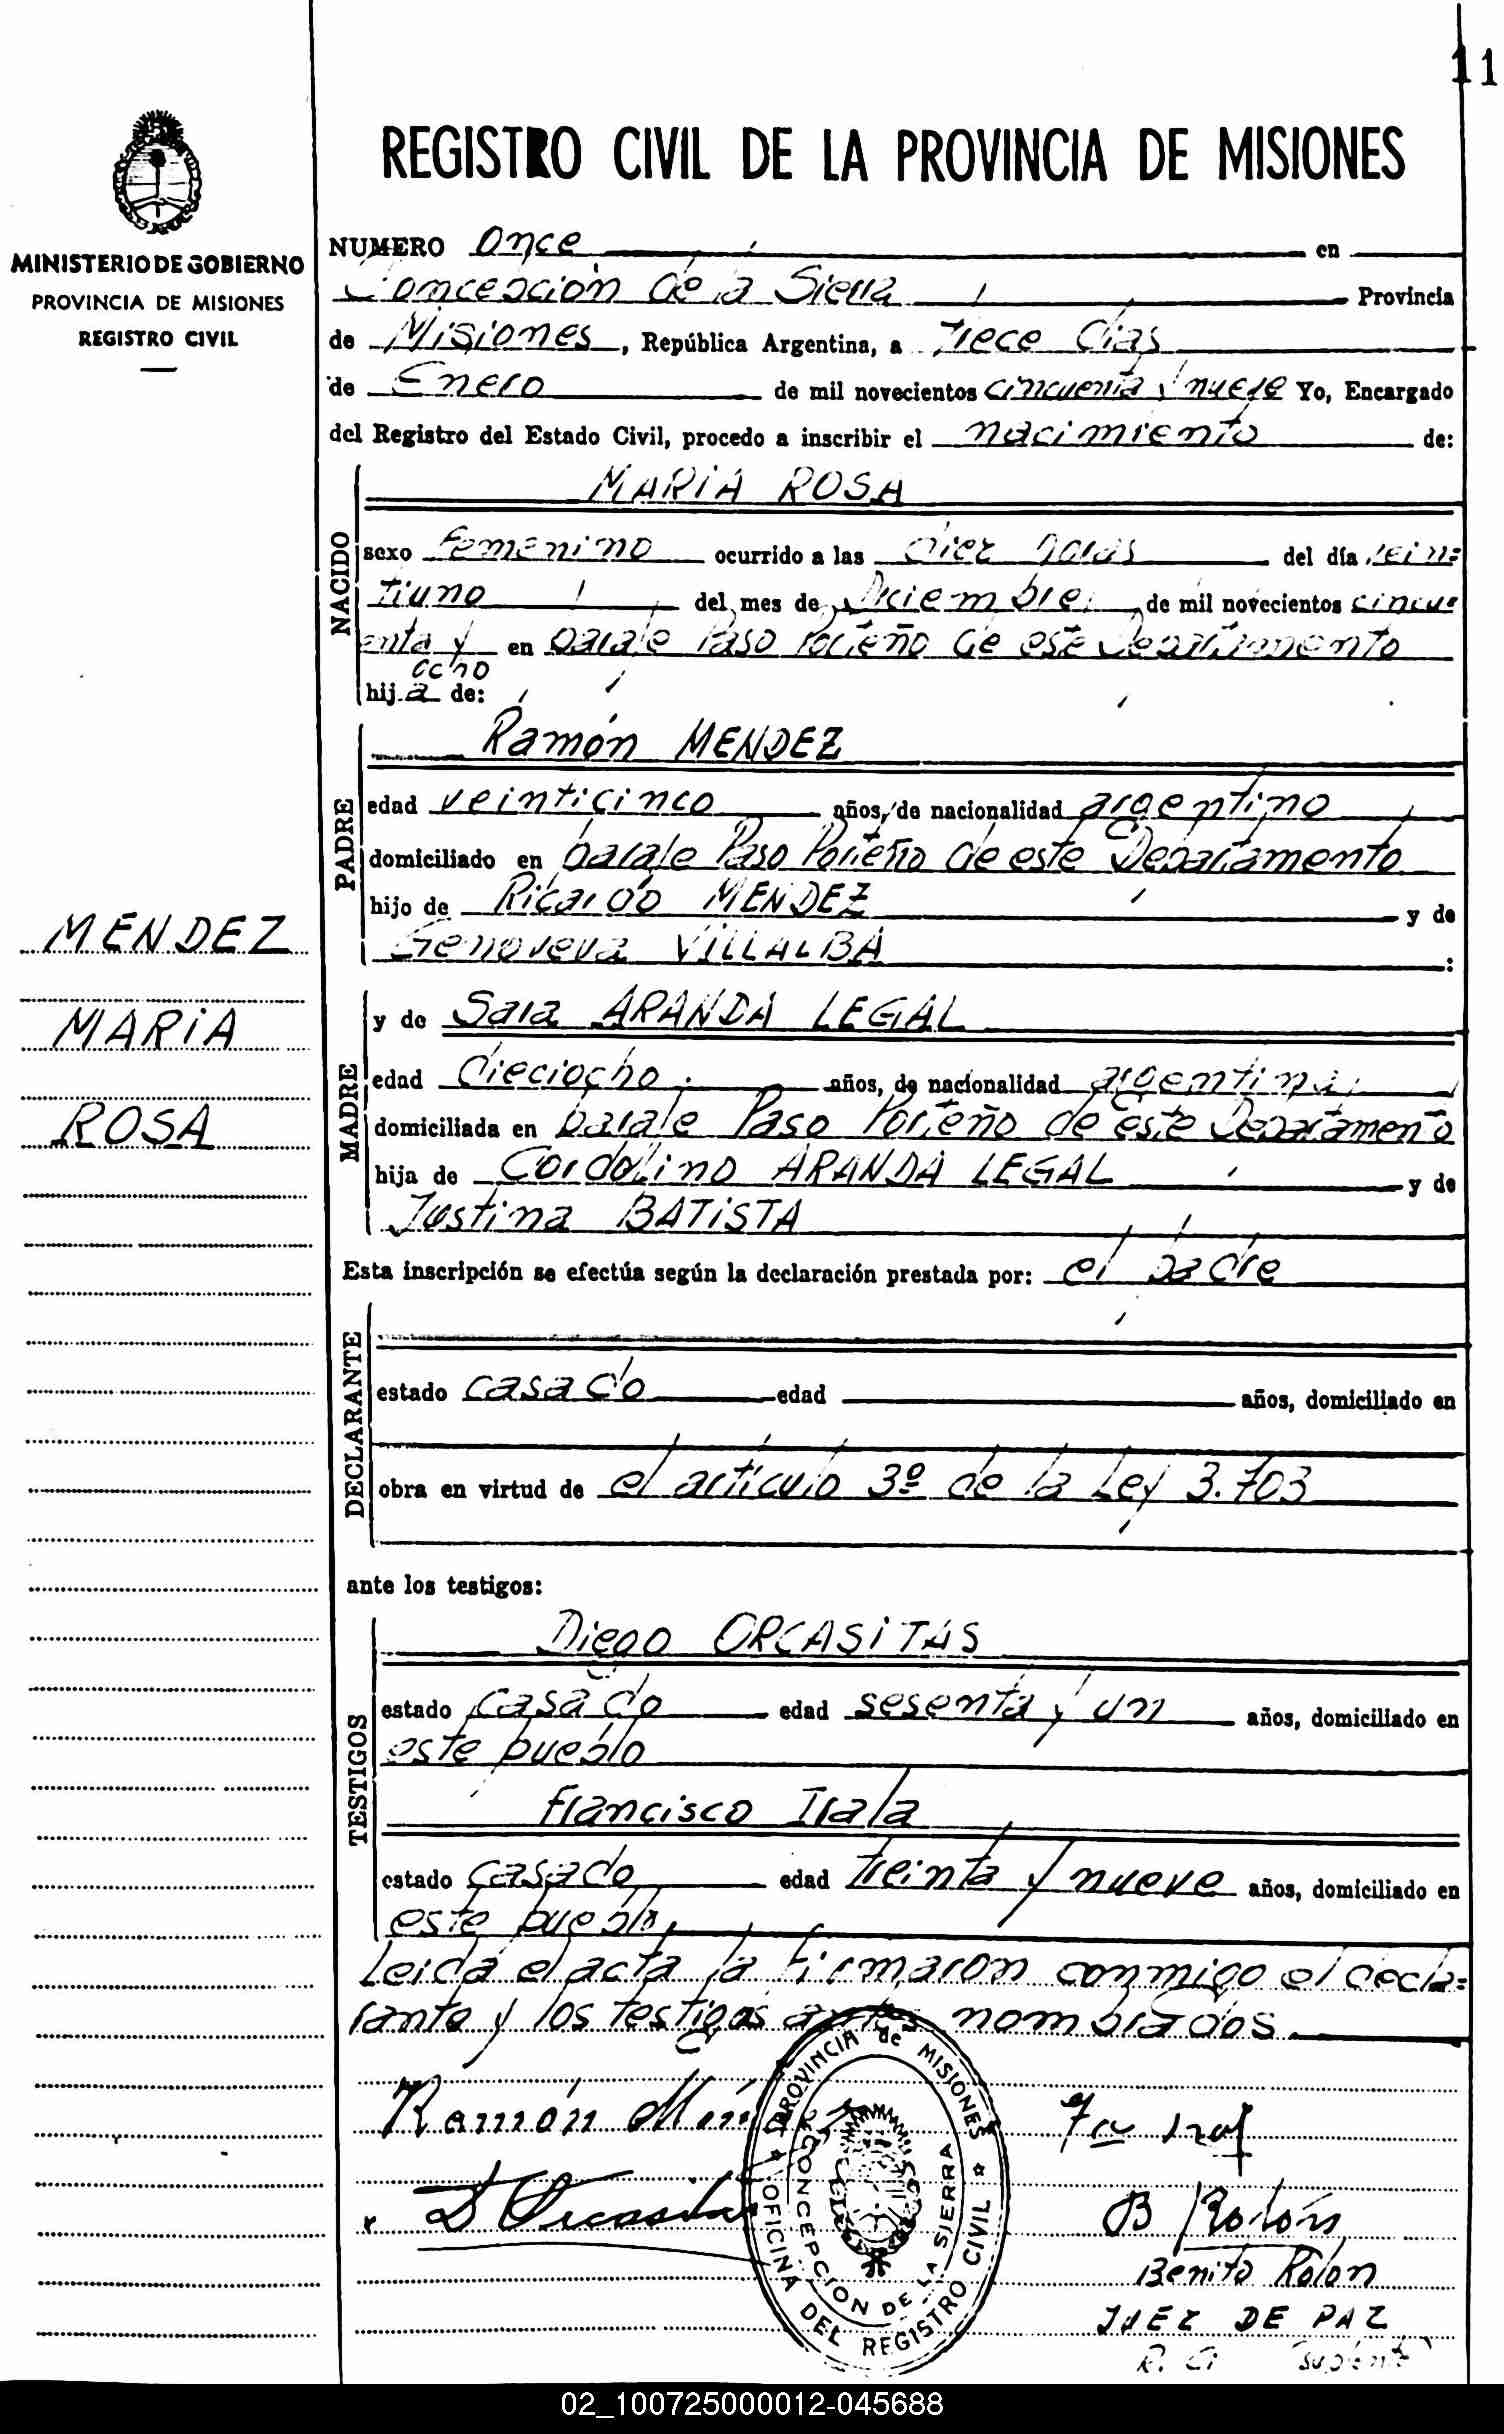 11
REGISTRO CIVIL DE LA PROVINCIA DE MISIONES
MINISTERIO DE GOBIERNO
PROVINCIA DE MISIONES
REGISTRO CIVIL
NUMERO Once en
Concepción de la Sierra Provincia
de Misiones, República Argentina, a trece días
de Enero de mil novecientos cincuenta y nueve Yo, Encargado
del Registro del Estado Civil, procedo a inscribir el nacimiento de:
NACIDO
MARIA ROSA
sexo femenino ocurrido a las diez horas del día vein=
tiuno del mes de Diciembre de mil novecientos cincu
enta y ocho en paraje Paso Porteño de este Departamento
hija de:
PADRE
Ramón MENDEZ
edad veinticinco años, de nacionalidad argentino
domiciliado en paraje Paso Porteño de este Departamento
hijo de Ricardo MENDEZ y de
Genoveva VILLALBA :
MENDEZ
MARIA
ROSA
MADRE
y de Sara ARANDA LEGAL
edad dieciocho años, de nacionalidad argentina
domiciliada en paraje Paso Porteño de este Departamento
hija de Cordolino ARANDA LEGAL y de
Justina BATISTA
Esta inscripción se efectúa según la declaración prestada por: el padre
DECLARANTE
estado casado edad años, domiciliado en
obra en virtud de el artículo 3º de la Ley 3.703
ante los testigos:
TESTIGOS
Diego ORCASITAS
estado casado edad sesenta y un años, domiciliado en
este pueblo
Francisco Irala
estado casado edad treinta y nueve años, domiciliado en
este pueblo
Leída el acta la firmaron conmigo el decla=
rante y los testigos antes nombrados.
Ramón
D Orcasitas
B Rolón
Benito Rolon
JUEZ DE PAZ
R. C. suplente
PROVINCIA de MISIONES
OFICINA DEL REGISTRO CIVIL
CONCEPCION DE LA SIERRA
02_100725000012-045688